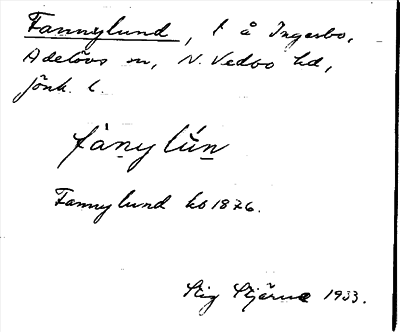 Fannylund, l å Ingerbo,
Adelövs sn, N. Vedbo hd,
Jönk. l.
fàny lún
Fannylund kb 1876.
Stig Stjärne 1933.